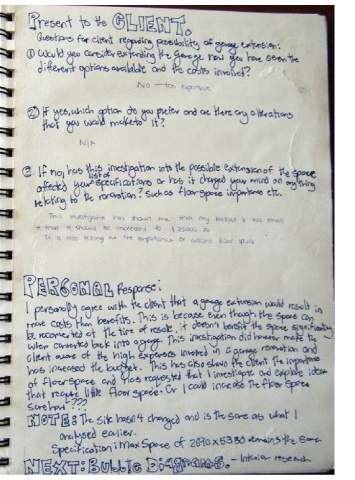 Present to the CLIENT.
Questions for client regarding possibility of garage extension:
① Would you consider extending the garage now you have seen the
different options available and the costs involved?
No - too expensive
② If yes, which option do you prefer and are there any alterations
that you would make to it?
N/A
③ If no, has this investigation into the possible extension of the space
affected your list of specifications or has it changed your mind on anything
relating to the renovation? Such as floor space importance etc.
This investigation has shown me that my budget is too small
+ that it should be increased to $25000.00
It is also the importance of floor space
PERSONAL Response:
I personally agree with the client that a garage extension would result in
more costs than benefits. This is because even though the space can
be reconverted at the time of resale, it doesn't benefit the space significantly
when converted back into a garage. This investigation did however make the
client aware of the high expenses involved in a garage renovation and
has increased the budget. This has also shown the client the importance
of floor space and has requested that I investigate and explore ideas
that require little floor space. Or I could increase the floor space
somehow???
NOTE: The site hasn't changed and is the same as what I
analysed earlier.
Specification: Max Space of 2690 x 5330 remains the same
NEXT: Bubble Diagrams. - Interior research